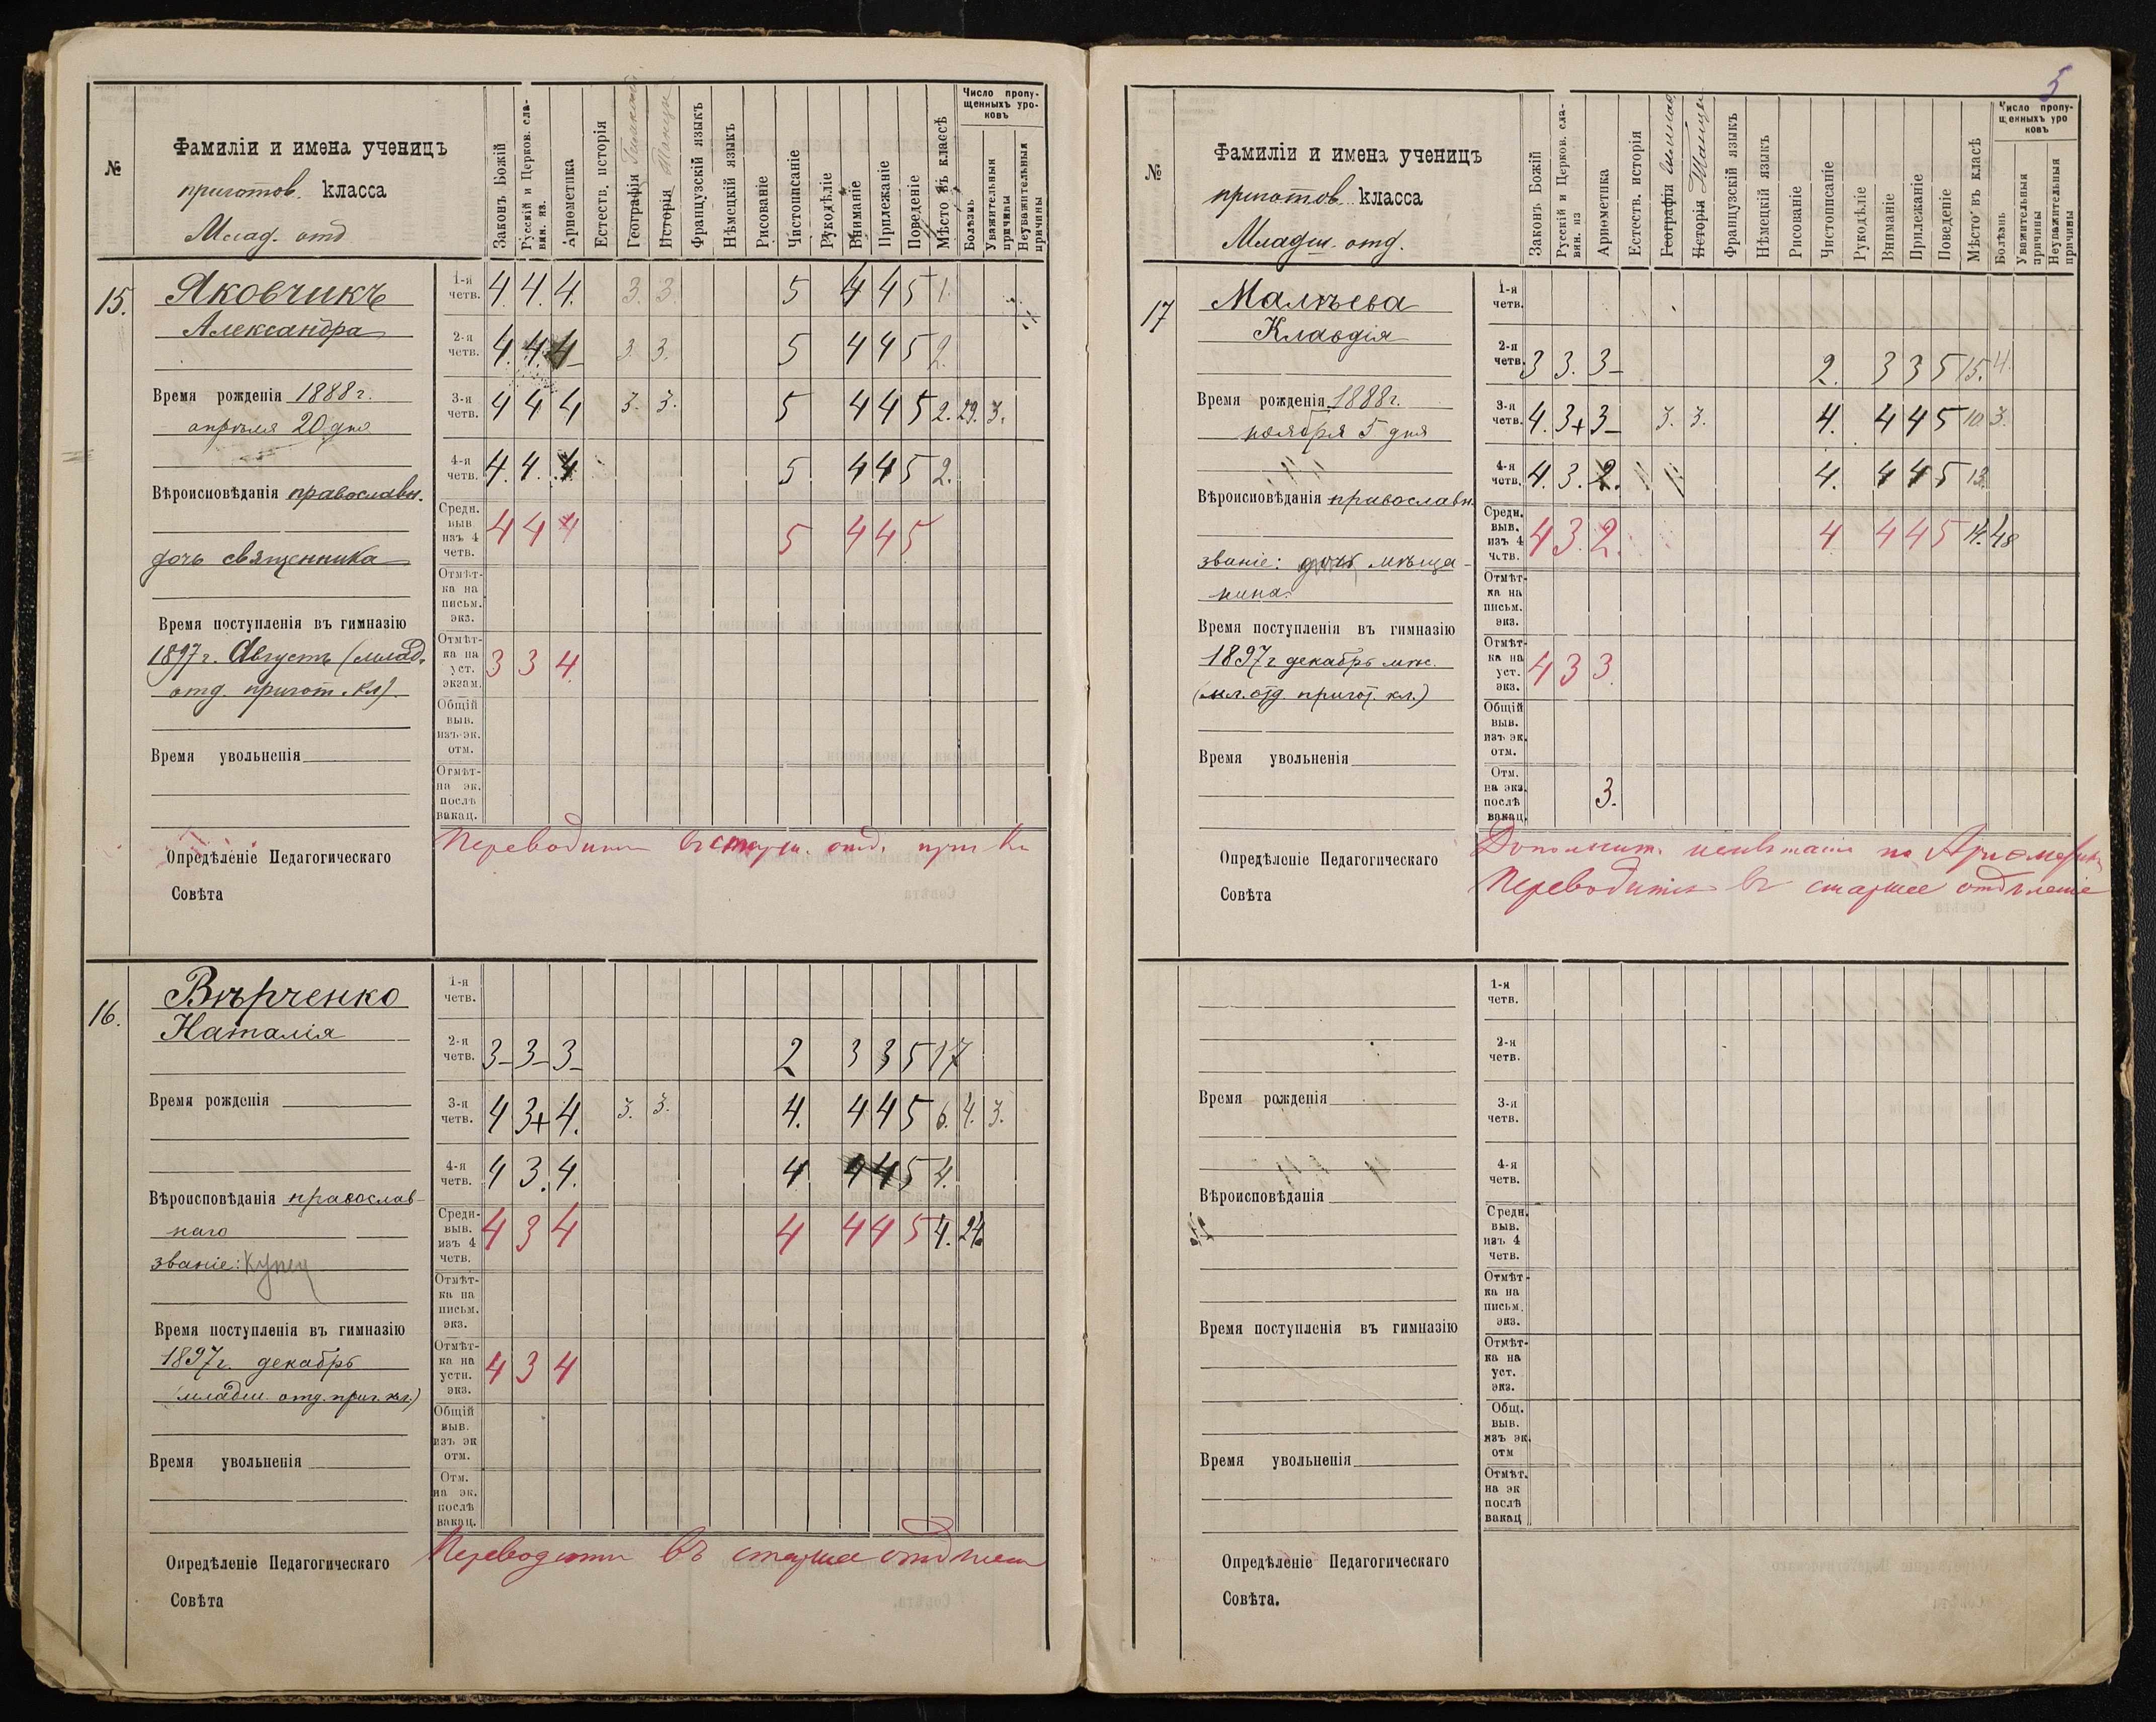 №
Фамиліи и имена ученицъ
приготов. класса
Млад. отд
Законъ Божій
Русскій и Церков. сла-
вян. яз.
Ариѳметика
Естеств. исторія
Географія
Исторія Танцы
Французскій языкъ
Нѣмецкій языкъ
Рисованіе
Чистописаніе
Рукодѣліе
Вниманіе
Прилежаніе
Поведеніе
Мѣсто въ классѣ
Число пропу-
щенныхъ уро-
ковъ
Болѣзнь
Уважительныя
причины
Неуважительныя
причины
15.
Яковчикъ
Александра
Время рожденія 1888 г.
апрѣля 20 дня
Вѣроисповѣданія православн.
дочь священника
Время поступленія въ гимназію
1897 г. Августъ (млад.
отд. пригот. кл).
Время увольненія
Опредѣленіе Педагогическаго
Совѣта
1-я четв. 4. 4. 4. 3. 3. 5 4 4 5 1.
2-я четв. 4. 4. 4 3. 3. 5 4 4 5 2.
3-я четв. 4 4 4 3. 3. 5 4 4 5 2. 29. 3.
4-я четв. 4. 4. 4 5 4 4 5 2.
Средн. выв. изъ 4 четв. 4 4 4 5 4 4 5
Отмѣт-ка на письм. экз.
Отмѣт-ка на уст. экзам. 3 3 4.
Общій выв. изъ эк. отм.
Отмѣт- на эк. послѣ вакац.
Переводится въ старш. отд. приг Кл
16.
Вѣрченко
Наталія
Время рожденія
Вѣроисповѣданія православ-
наго
званіе: Купец
Время поступленія въ гимназію
1897 г. декабрь
(младш. отд. приг. кл.)
Время увольненія
Опредѣленіе Педагогическаго
Совѣта
1-я четв.
2-я четв. 3- 3- 3- 2 3 3 5 17
3-я четв. 4 3+ 4. 3. 3. 4. 4 4 5 6. 4. 3.
4-я четв. 4 3. 4. 4 4 4 5 4.
Средн- выв. изъ 4 четв. 4 3 4 4 4 4 5 4. 24.
Отмѣт-ка на письм. экз.
Отмѣт-ка на устн. экз. 4 3 4
Общій выв. изъ эк отм.
Отм. на эк. послѣ вакац.
Переводится въ старшее отдѣленіе
5
№
Фамиліи и имена ученицъ
приготов. класса
Младш. отд.
Законъ Божій
Русскій и Церков. сла-
вян. яз
Ариѳметика
Естеств. исторія
Географія
Исторія Танцы
Французскій языкъ
Нѣмецкій языкъ
Рисованіе
Чистописаніе
Рукодѣліе
Вниманіе
Прилежаніе
Поведеніе
Мѣсто въ класѣ
Число пропу-
щенныхъ уро
ковъ
Болѣзнь
Уважительныя
причины
Неуважительныя
причины
17
Малѣева
Клавдія
Время рожденія 1888 г.
ноября 5 дня
Вѣроисповѣданія православн.
званіе: дочь мѣща-
нина.
Время поступленія въ гимназію
1897 г декабрь мѣс.
(мл. отд. пригот. кл.)
Время увольненія
Опредѣленіе Педагогическаго
Совѣта
1-я четв.
2-я четв. 3 3. 3- 2. 3 3 5 15. 4.
3-я четв. 4. 3+ 3- 3. 3. 4. 4 4 5 10 3.
4-я четв. 4. 3. 2. 4. 4 4 5 13.
Средн. выв. изъ 4 четв. 4 3. 2. 4 4 4 5 14. 48
Отмѣт-ка на письм. экз.
Отмѣт-ка на уст. экз. 4 3 3.
Общій выв. изъ эк. отм.
Отм. на экз. послѣ вакац. 3.
Дополнит. испытаніе по Ариѳметикѣ
Переводится въ старшее отдѣленіе
Время рожденія
Вѣроисповѣданія
Время поступленія въ гимназію
Время увольненія
Опредѣленіе Педагогическаго
Совѣта.
1-я четв.
2-я четв.
3-я четв.
4-я четв.
Средн. выв. изъ 4 четв.
Отмѣт-ка на письм. экз.
Отмѣт-ка на уст. экз.
Общ. выв. изъ эк. отм
Отмѣт. на эк послѣ вакац